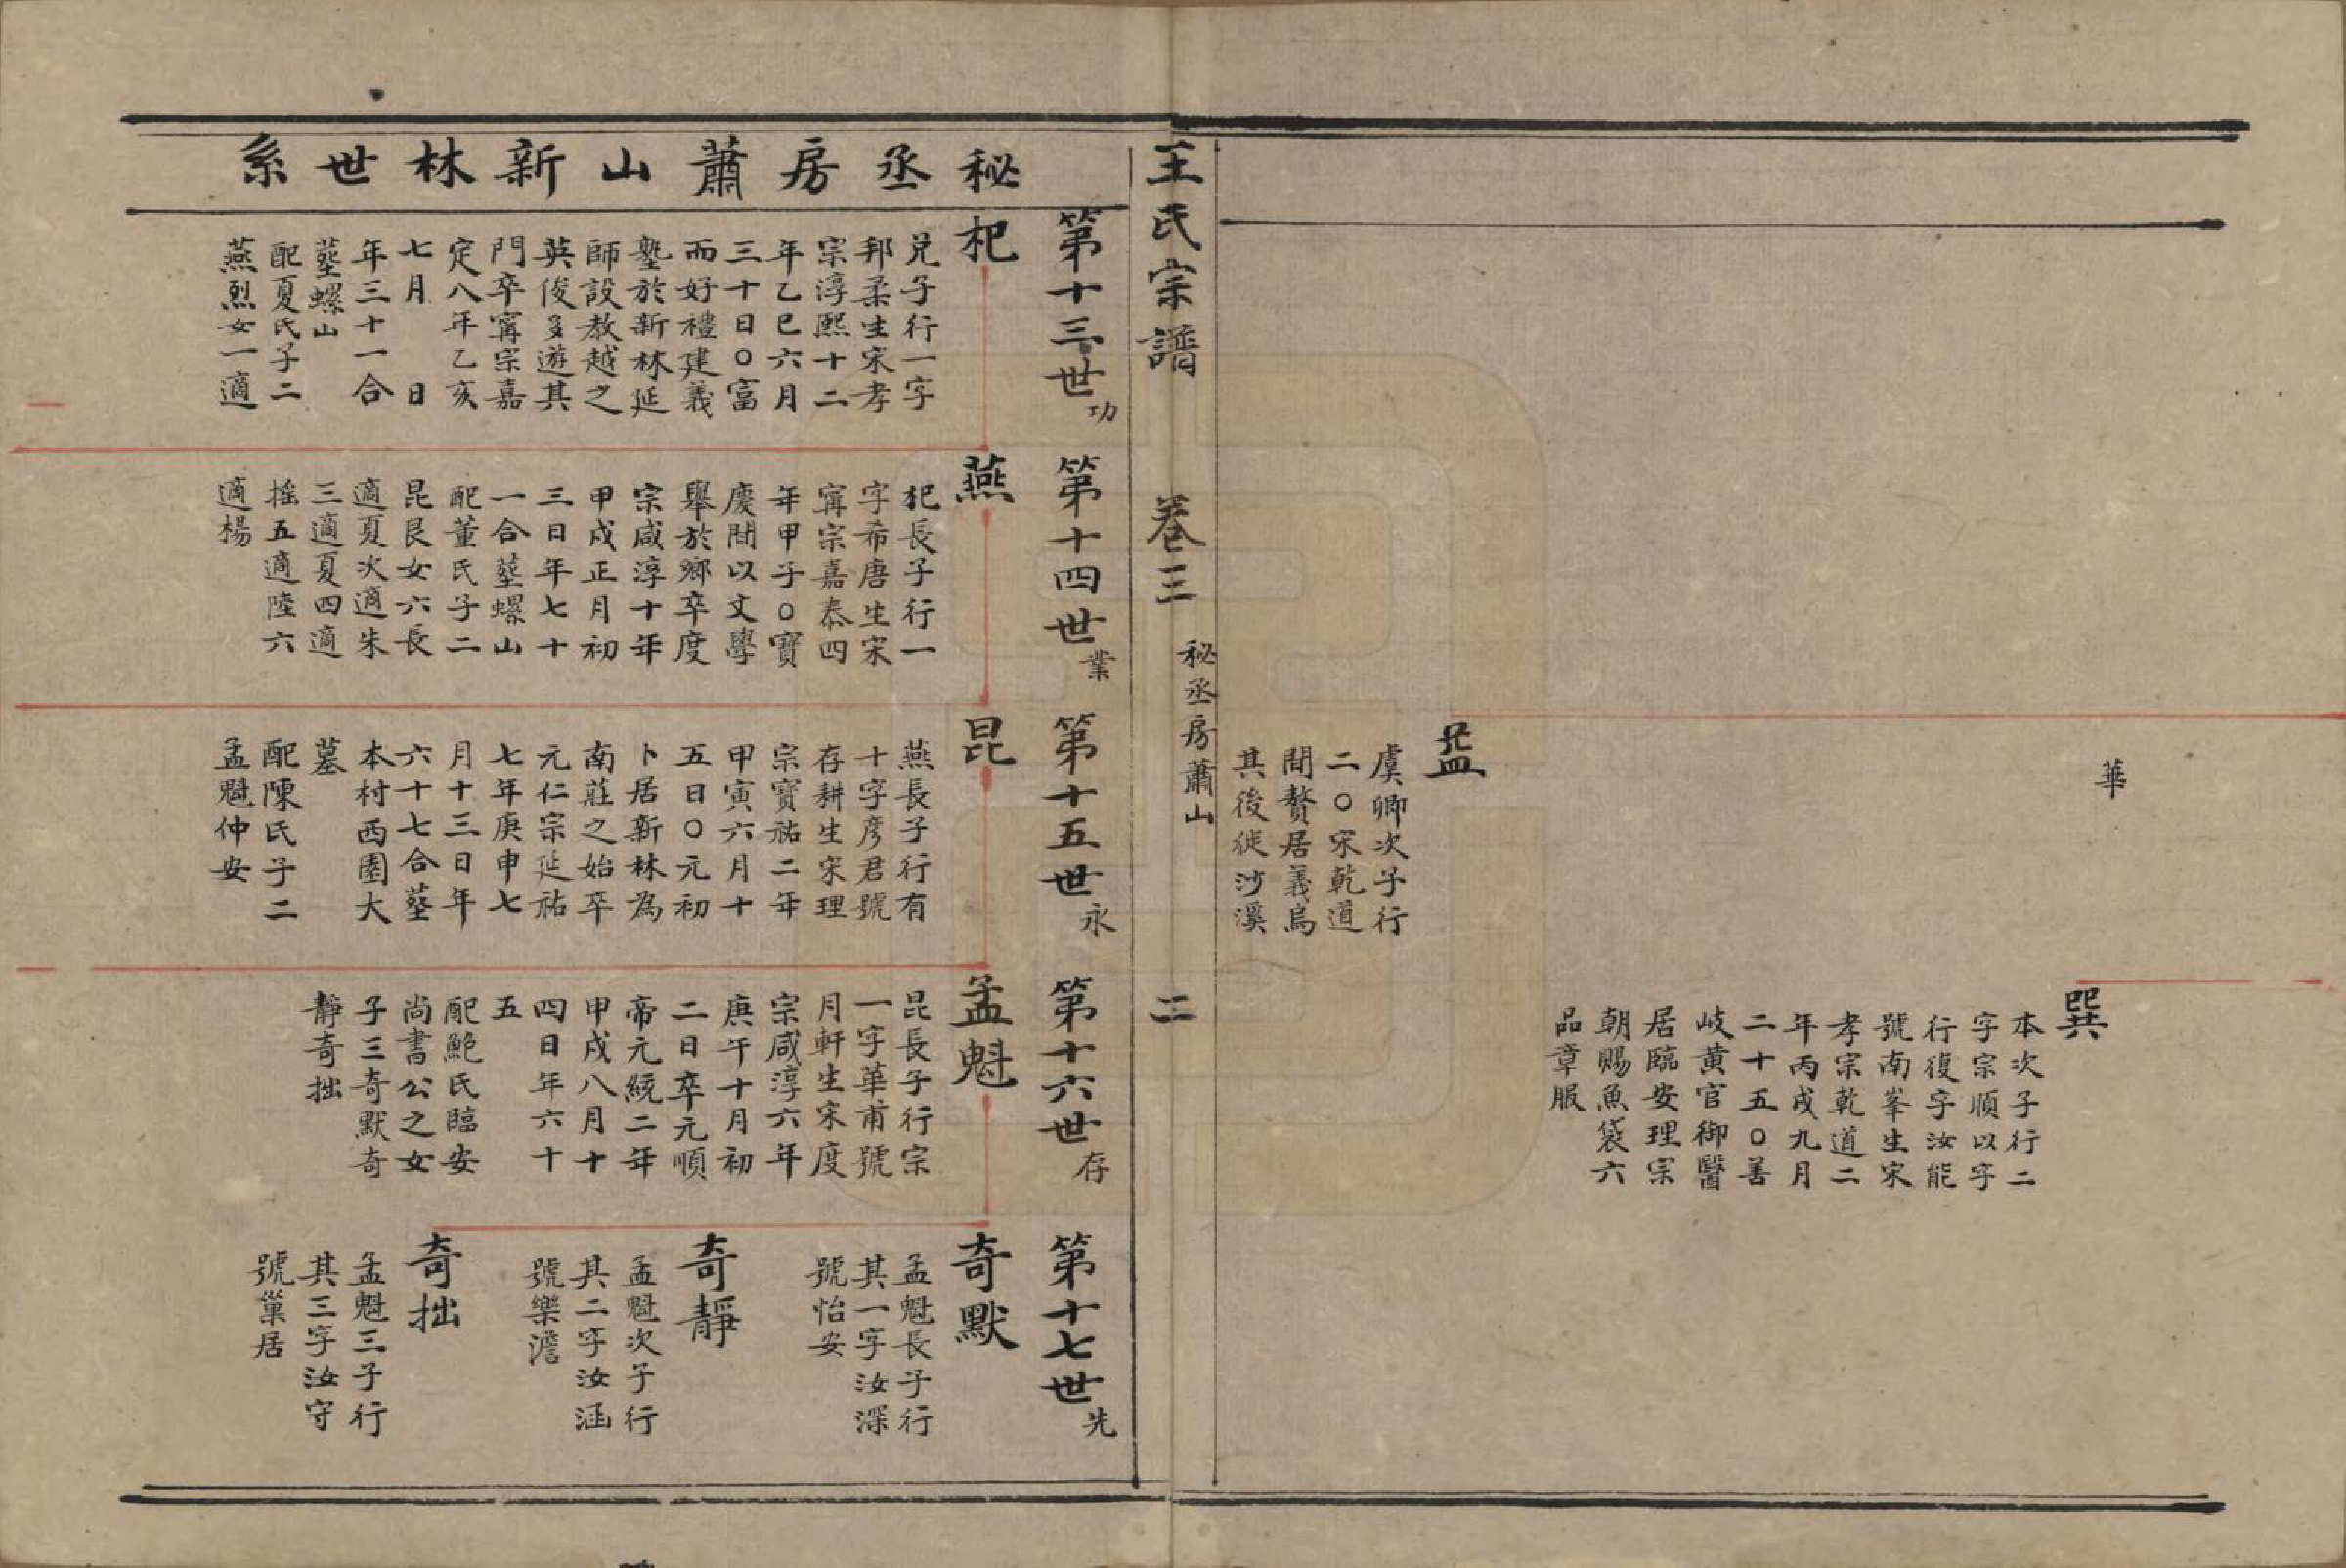 華
巽
本次子行二
字宗順以字
行復字汝能
號南峯生宋
孝宗乾道二
年丙戌九月
二十五〇善
岐黄官御醫
居臨安理宗
朝賜魚袋六
品章服
益
虞卿次子行
二〇宋乾道
間贅居義烏
其後徙沙溪
王氏宗譜 卷三 秘丞房蕭山 二
秘丞房蕭山新林世系
第十三世功
杞
兌子行一字
邦柔生宋孝
宗淳熙十二
年乙巳六月
三十日〇富
而好禮建義
塾於新林延
師設教越之
英俊多遊其
門卒寧宗嘉
定八年乙亥
七月 日
年三十一合
塟螺山
配夏氏子二
燕烈女一適
第十四世業
燕
杞長子行一
字希唐生宋
寧宗嘉泰四
年甲子〇寶
慶間以文學
舉於鄉卒度
宗咸淳十年
甲戌正月初
三日年七十
一合塟螺山
配董氏子二
昆艮女六長
適夏次適朱
三適夏四適
搖五適陸六
適楊
第十五世永
昆
燕長子行有
十字彦君號
存耕生宋理
宗寶祐二年
甲寅六月十
五日〇元初
卜居新林為
南莊之始卒
元仁宗延祐
七年庚申七
月十三日年
六十七合塟
本村西園大
墓
配陳氏子二
孟魁仲安
第十六世存
孟魁
昆長子行宗
一字華甫號
月軒生宋度
宗咸淳六年
庚午十月初
二日卒元順
帝元統二年
甲戌八月十
四日年六十
五
配鮑氏臨安
尚書公之女
子三奇默奇
靜奇拙
第十七世先
奇默
孟魁長子行
其一字汝深
號怡安
奇靜
孟魁次子行
其二字汝涵
號樂澹
奇拙
孟魁三子行
其三字汝守
號巢居